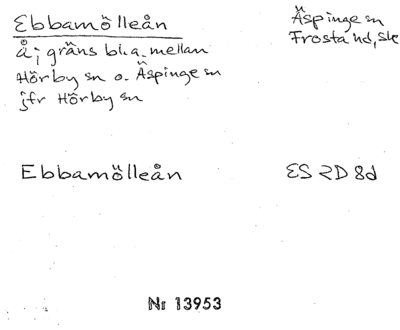 Ebbamölleån
Äspinge sn
Frosta hd, sk
å; gräns bl.a. mellan
Hörby sn o. Äspinge sn
jfr Hörby sn
Ebbamölleån
ES 2D 8d
Nr 13953